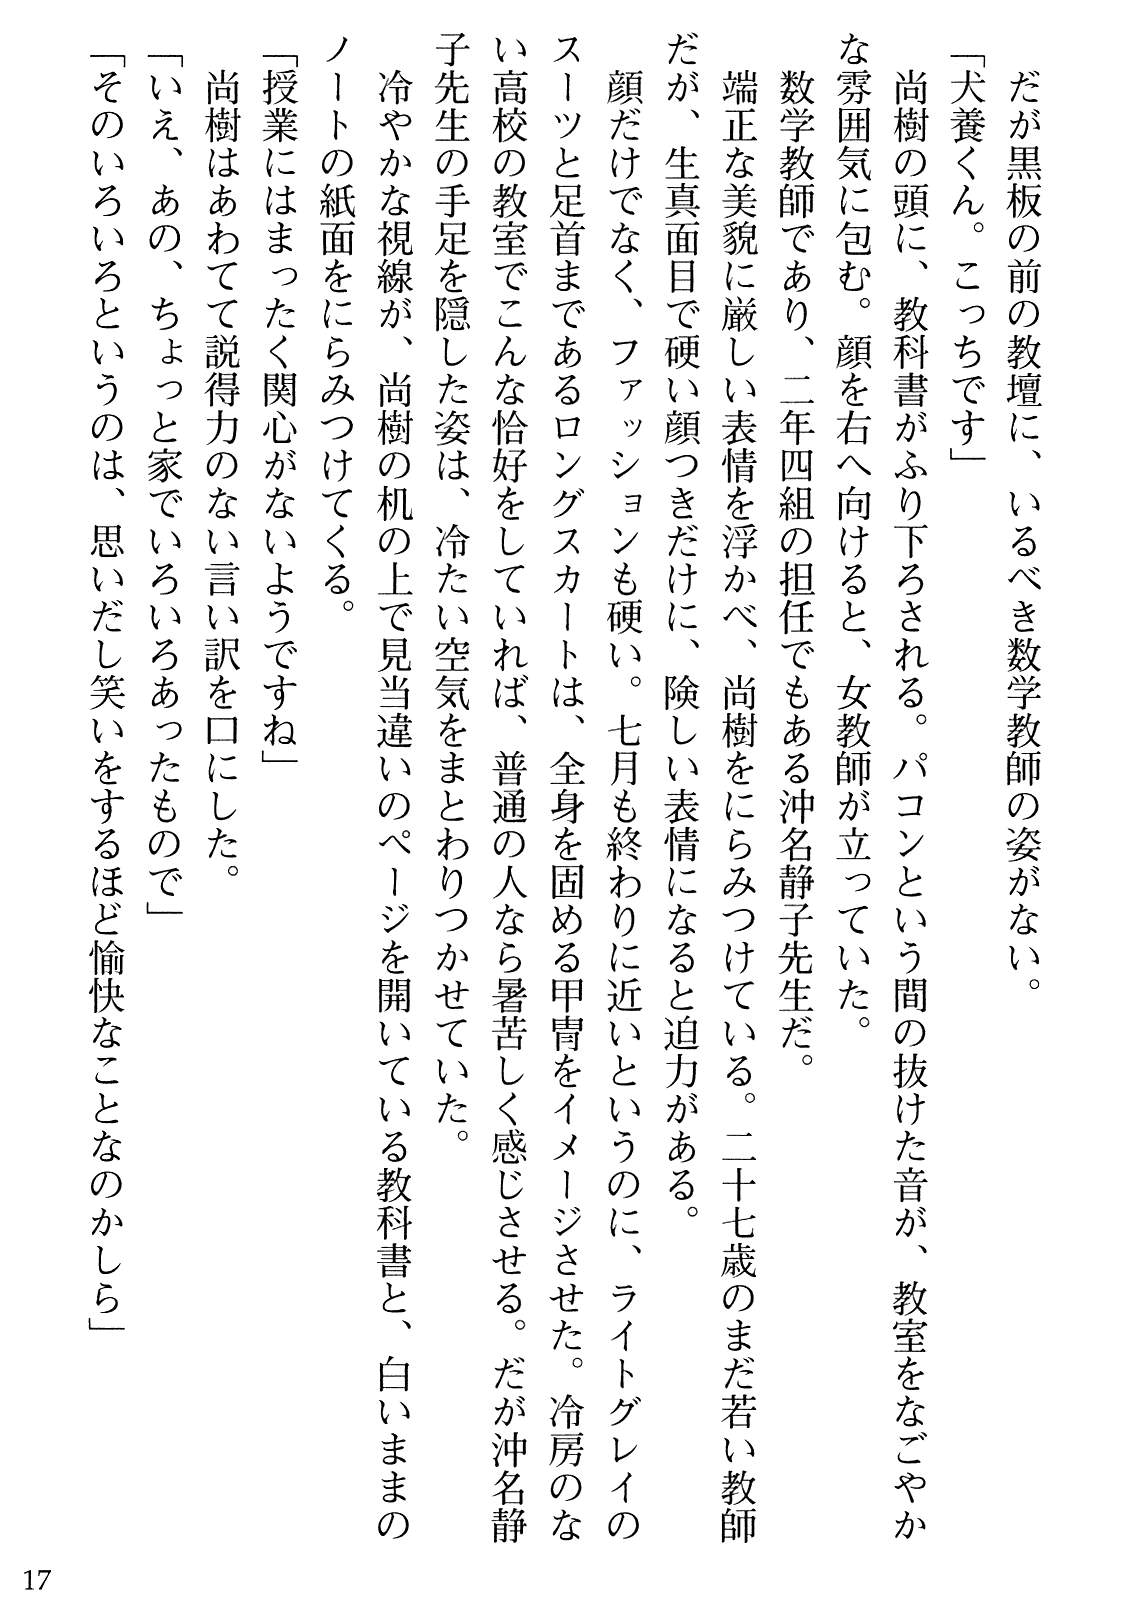 だが黒板の前の教壇に、いるべき数学教師の姿がない。
「犬養くん。こっちです」
尚樹の頭に、教科書がふり下ろされる。パコンという間の抜けた音が、教室をなごやか
な雰囲気に包む。顔を右へ向けると、女教師が立っていた。
数学教師であり、二年四組の担任でもある沖名静子先生だ。
端正な美貌に厳しい表情を浮かべ、尚樹をにらみつけている。二十七歳のまだ若い教師
だが、生真面目で硬い顔つきだけに、険しい表情になると迫力がある。
顔だけでなく、ファッションも硬い。七月も終わりに近いというのに、ライトグレイの
スーツと足首まであるロングスカートは、全身を固める甲冑をイメージさせた。冷房のな
い高校の教室でこんな恰好をしていれば、普通の人なら暑苦しく感じさせる。だが沖名静
子先生の手足を隠した姿は、冷たい空気をまとわりつかせていた。
冷ややかな視線が、尚樹の机の上で見当違いのページを開いている教科書と、白いままの
ノートの紙面をにらみつけてくる。
「授業にはまったく関心がないようですね」
尚樹はあわてて説得力のない言い訳を口にした。
「いえ、あの、ちょっと家でいろいろあったもので」
「そのいろいろというのは、思いだし笑いをするほど愉快なことなのかしら」
17